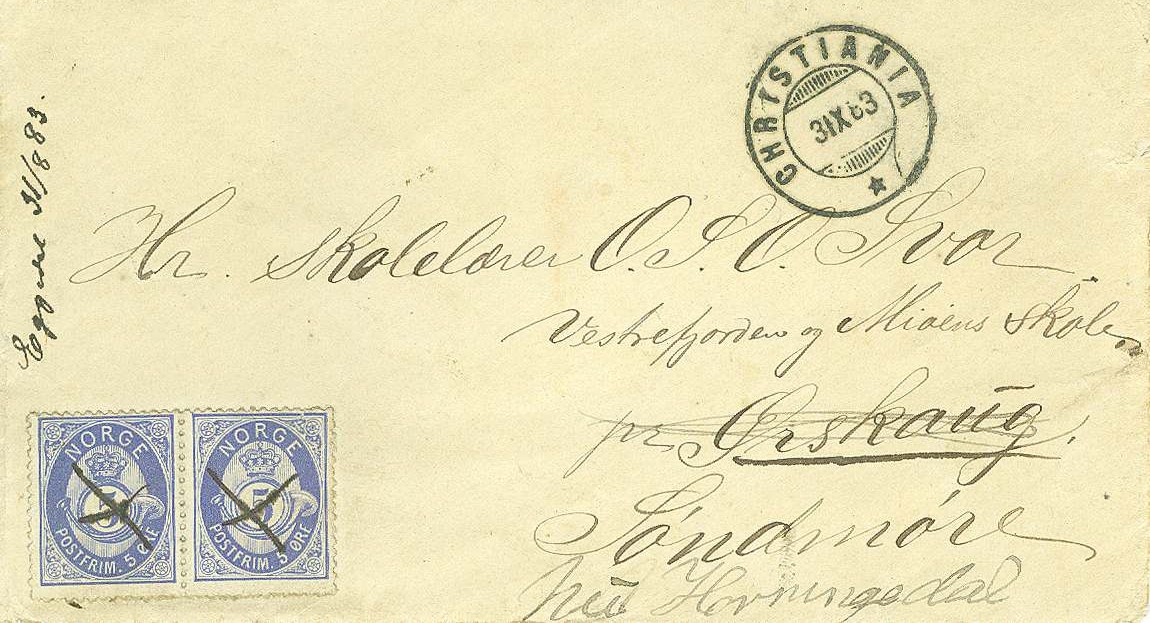 CHRISTIANIA
3 IX 83
31/8 83.
Hr. Skolelærer O. S. O. Svor.
Vestrefjorden og Mioens Skole
pr. Ørskaug.
Søndmøre
NORGE
5
POSTFRIM. 5 ØRE
NORGE
5
POSTFRIM. 5 ØRE